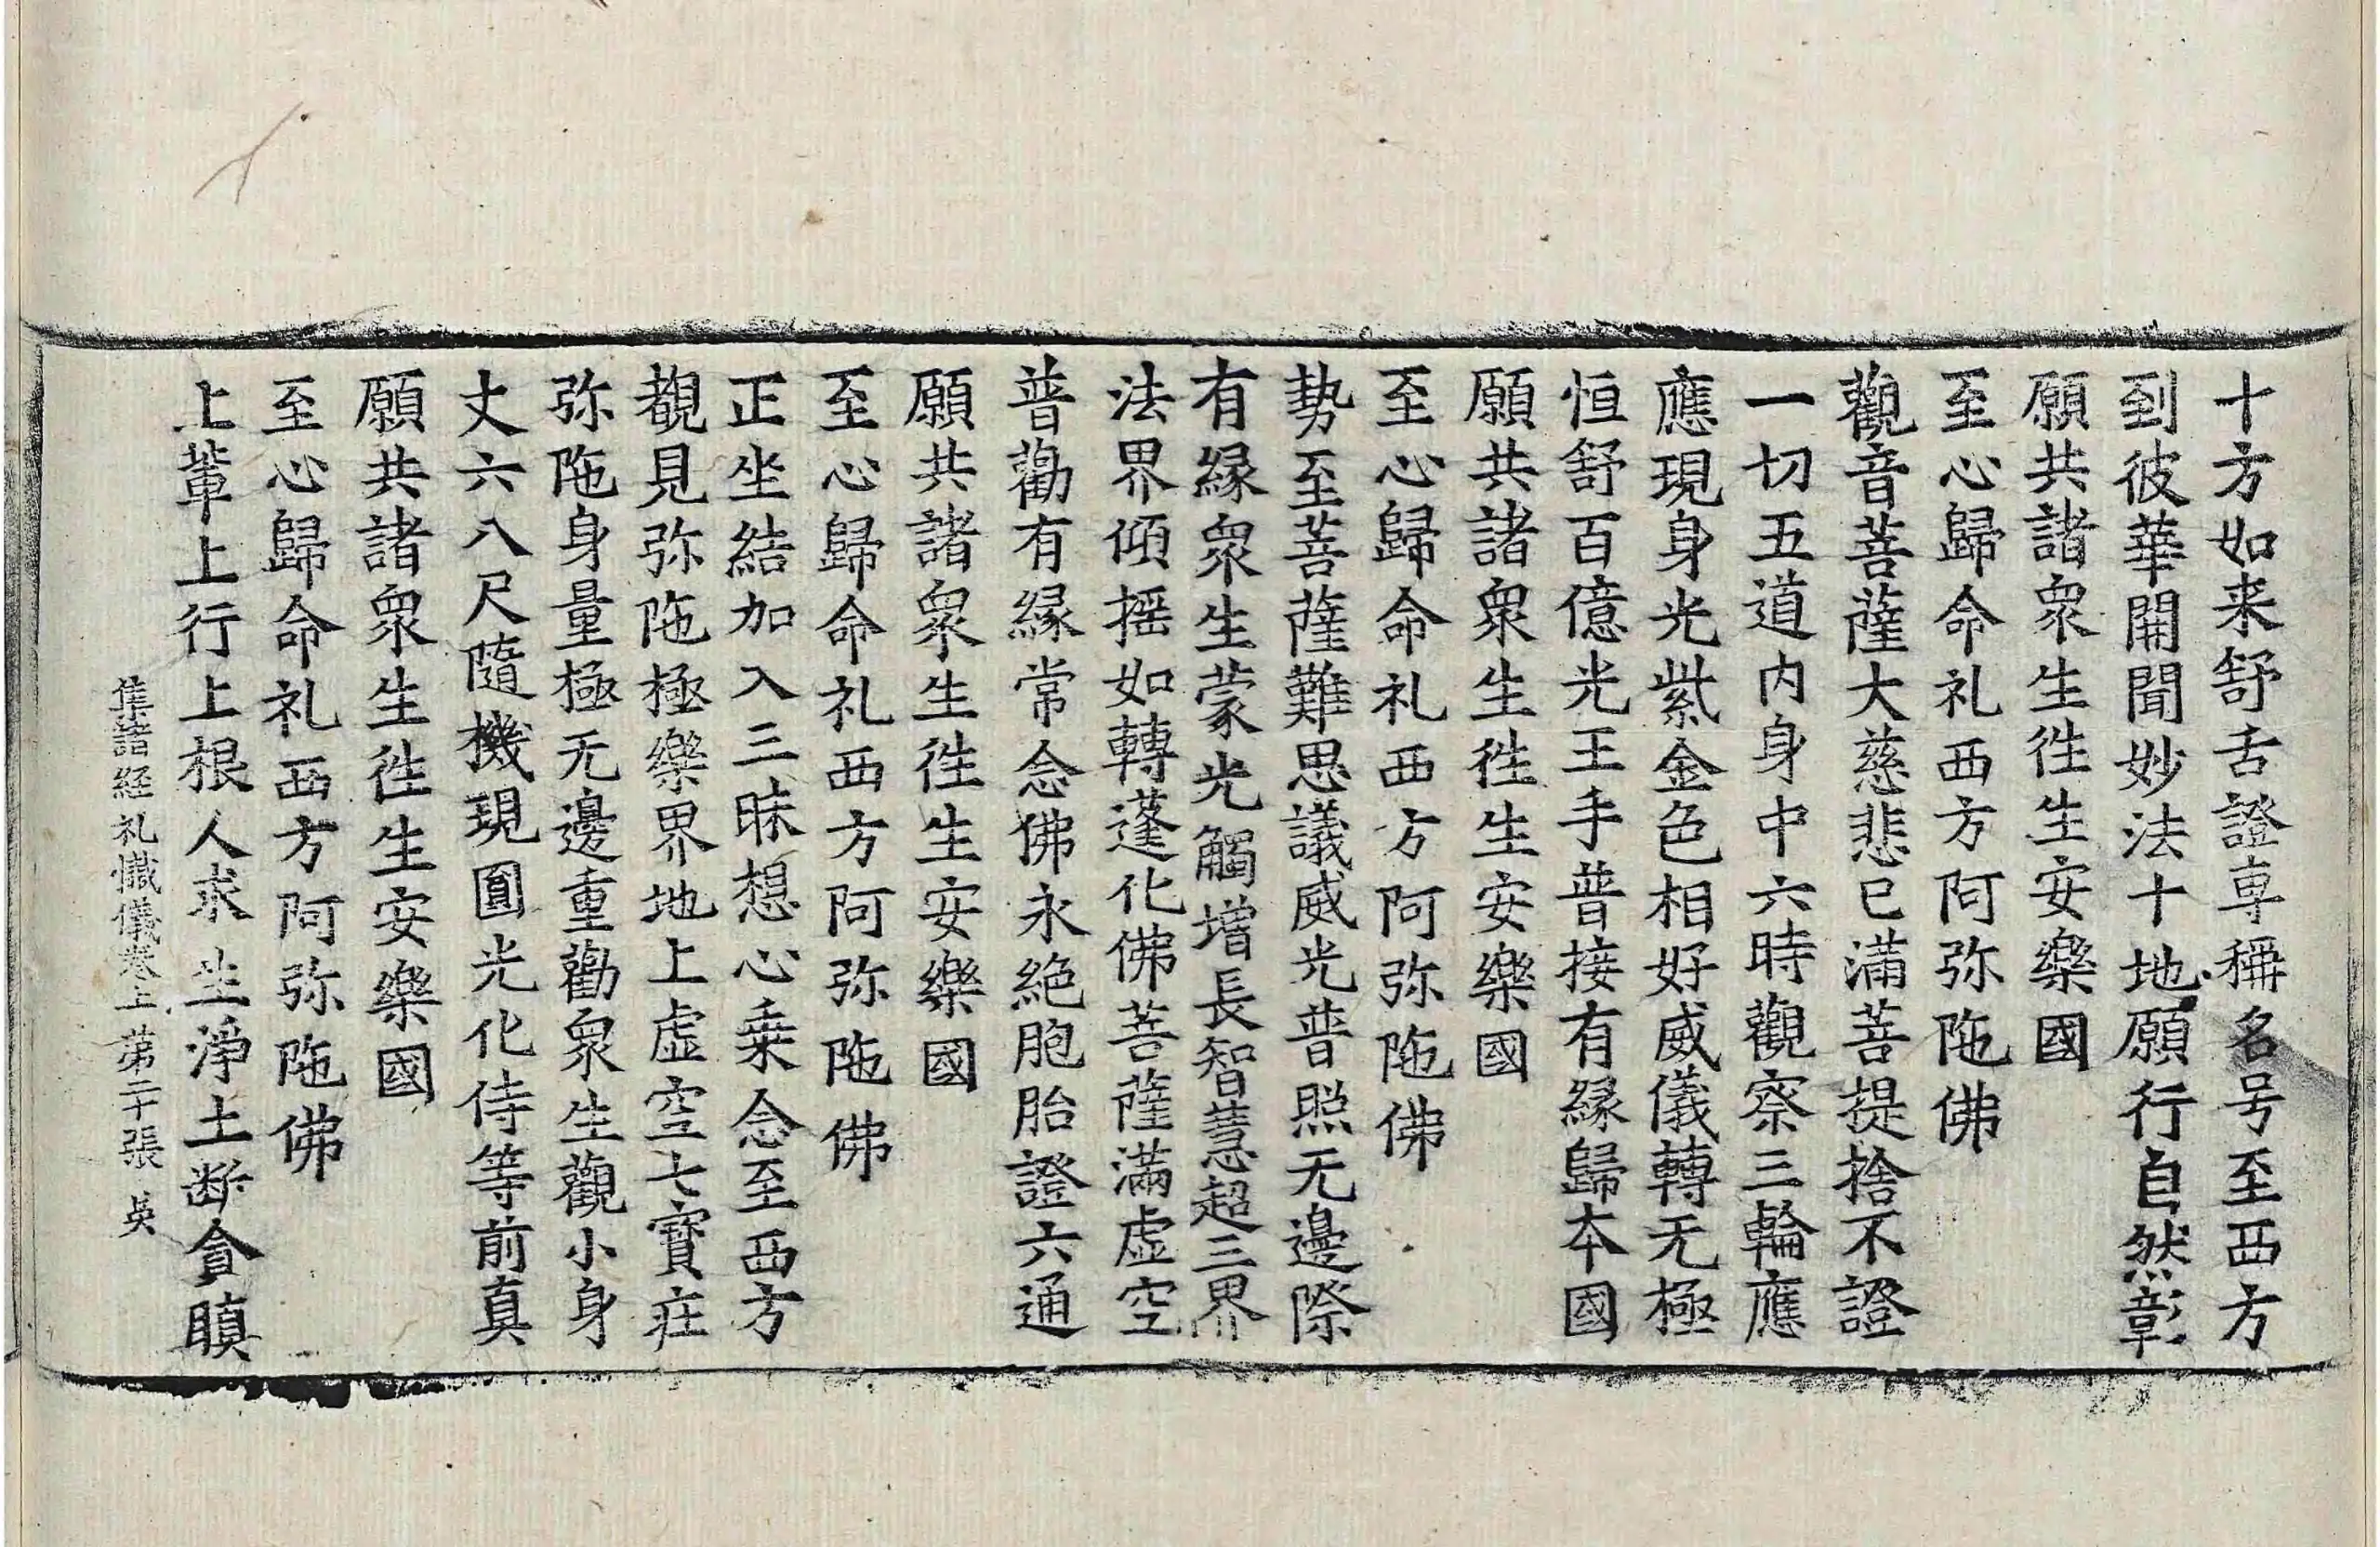 十方如来舒舌證専稱名号至西方
到彼華開聞妙法十地願行自然彰
願共諸衆生徃生安樂國
至心歸命礼西方阿弥陁佛
觀音菩薩大慈悲已滿菩提捨不證
一切五道内身中六時觀察三輪應
應現身光紫金色相好威儀轉无極
恒舒百億光王手普接有縁歸夲國
願共諸衆生徃生安樂國
至心歸命礼西方阿弥陁佛
勢至菩薩難思議威光普照无邊際
有縁衆生蒙光觸增長智慧超三界
法界傾摇如轉蓬化佛菩薩滿虚空
普勸有縁常念佛永絶胞胎證六通
願共諸衆生徃生安樂國
至心歸命礼西方阿弥陁佛
正坐結加入三昧想心乗念至西方
覩見弥陁極樂界地上虚空七寳莊
弥陁身量極无邊重勸衆生觀小身
丈六八尺隨機現圓光化侍等前真
願共諸衆生徃生安樂國
至心歸命礼西方阿弥陁佛
上輩上行上根人求生淨土断貪瞋
集諸經礼懺儀卷上 第二十張 吳